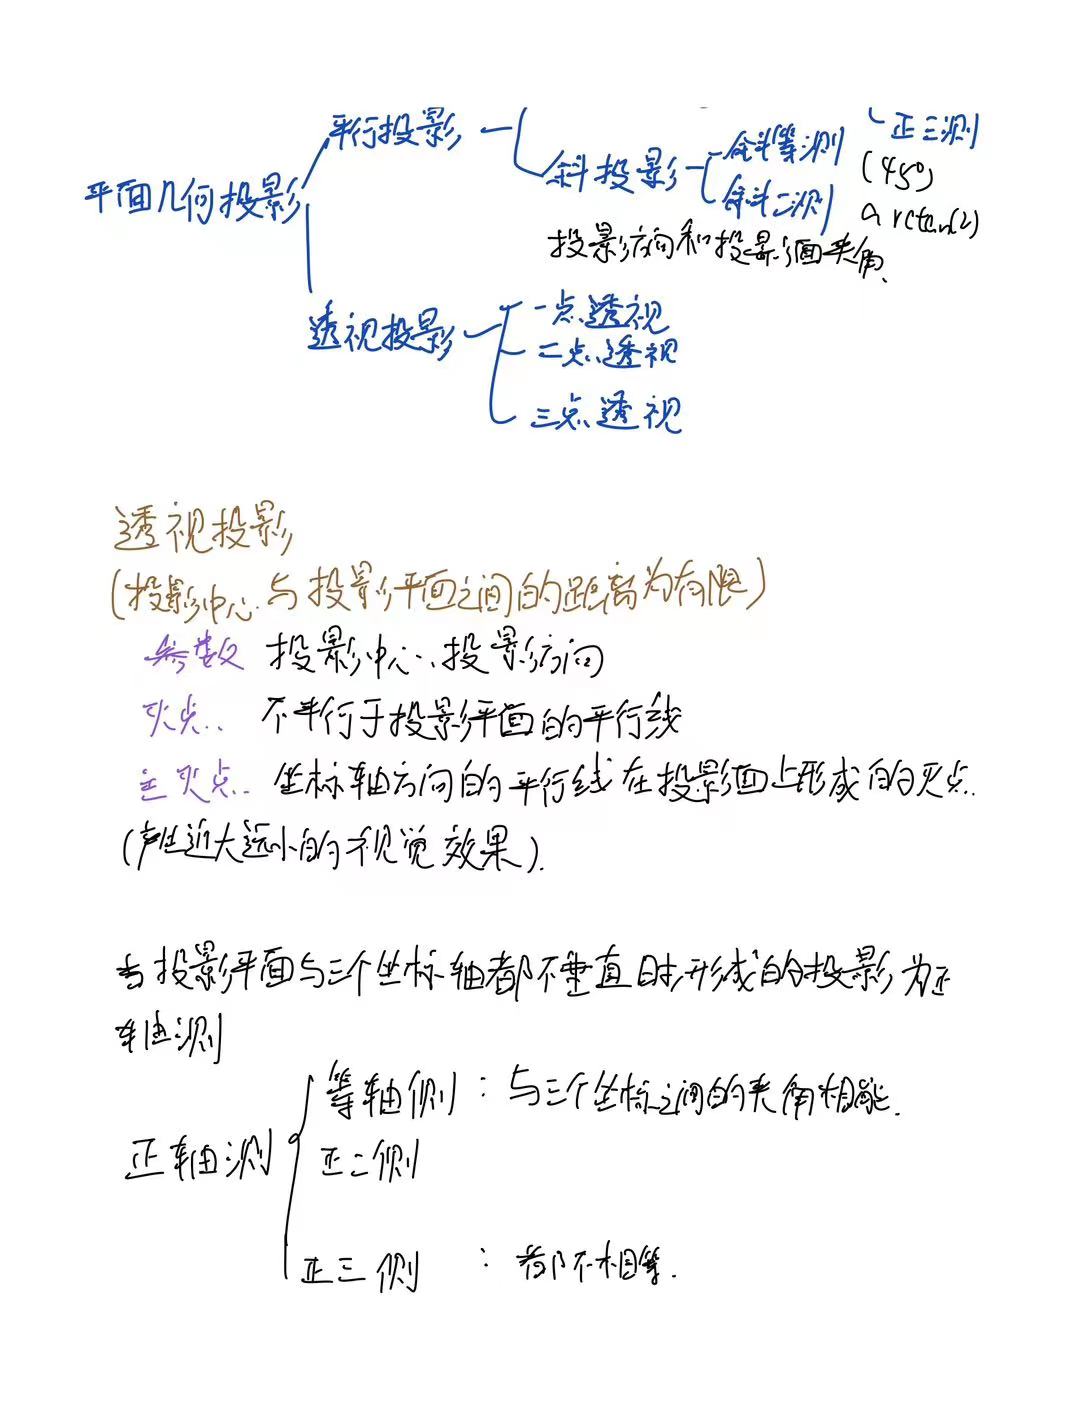 平行投影
正三测
斜投影
斜等测 (45°)
平面几何投影
斜二测 arctan(2)
投影方向和投影面夹角
透视投影
一点透视
二点透视
三点透视
透视投影
(投影中心与投影平面之间的距离为有限)
参数 投影中心、投影方向
灭点. 不平行于投影平面的平行线
主灭点. 坐标轴方向的平行线在投影面上形成的灭点.
(产生近大远小的视觉效果).
当投影平面与三个坐标轴都不垂直时,形成的投影为正
轴测
等轴侧 : 与三个坐标之间的夹角相能.
正轴测
正二侧
正三侧 : 都不相等.